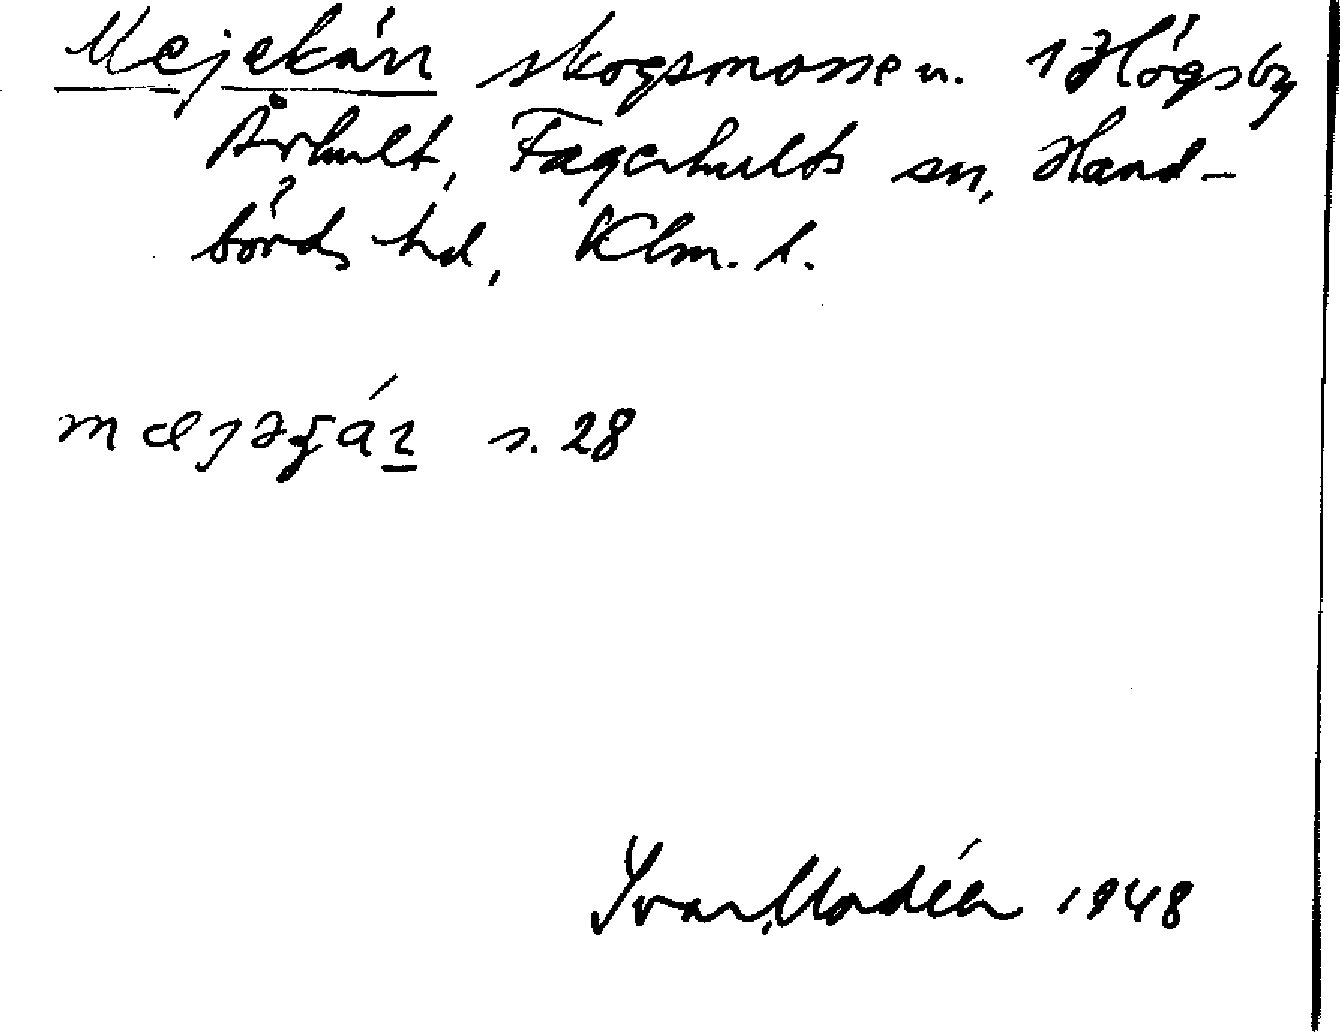 Mejekärr skogsmosse u. 1 Högsby
Århult, Fagerhults sn, Hand-
börds hd, Klm. l.
s. 28
Ivar Modéer 1948